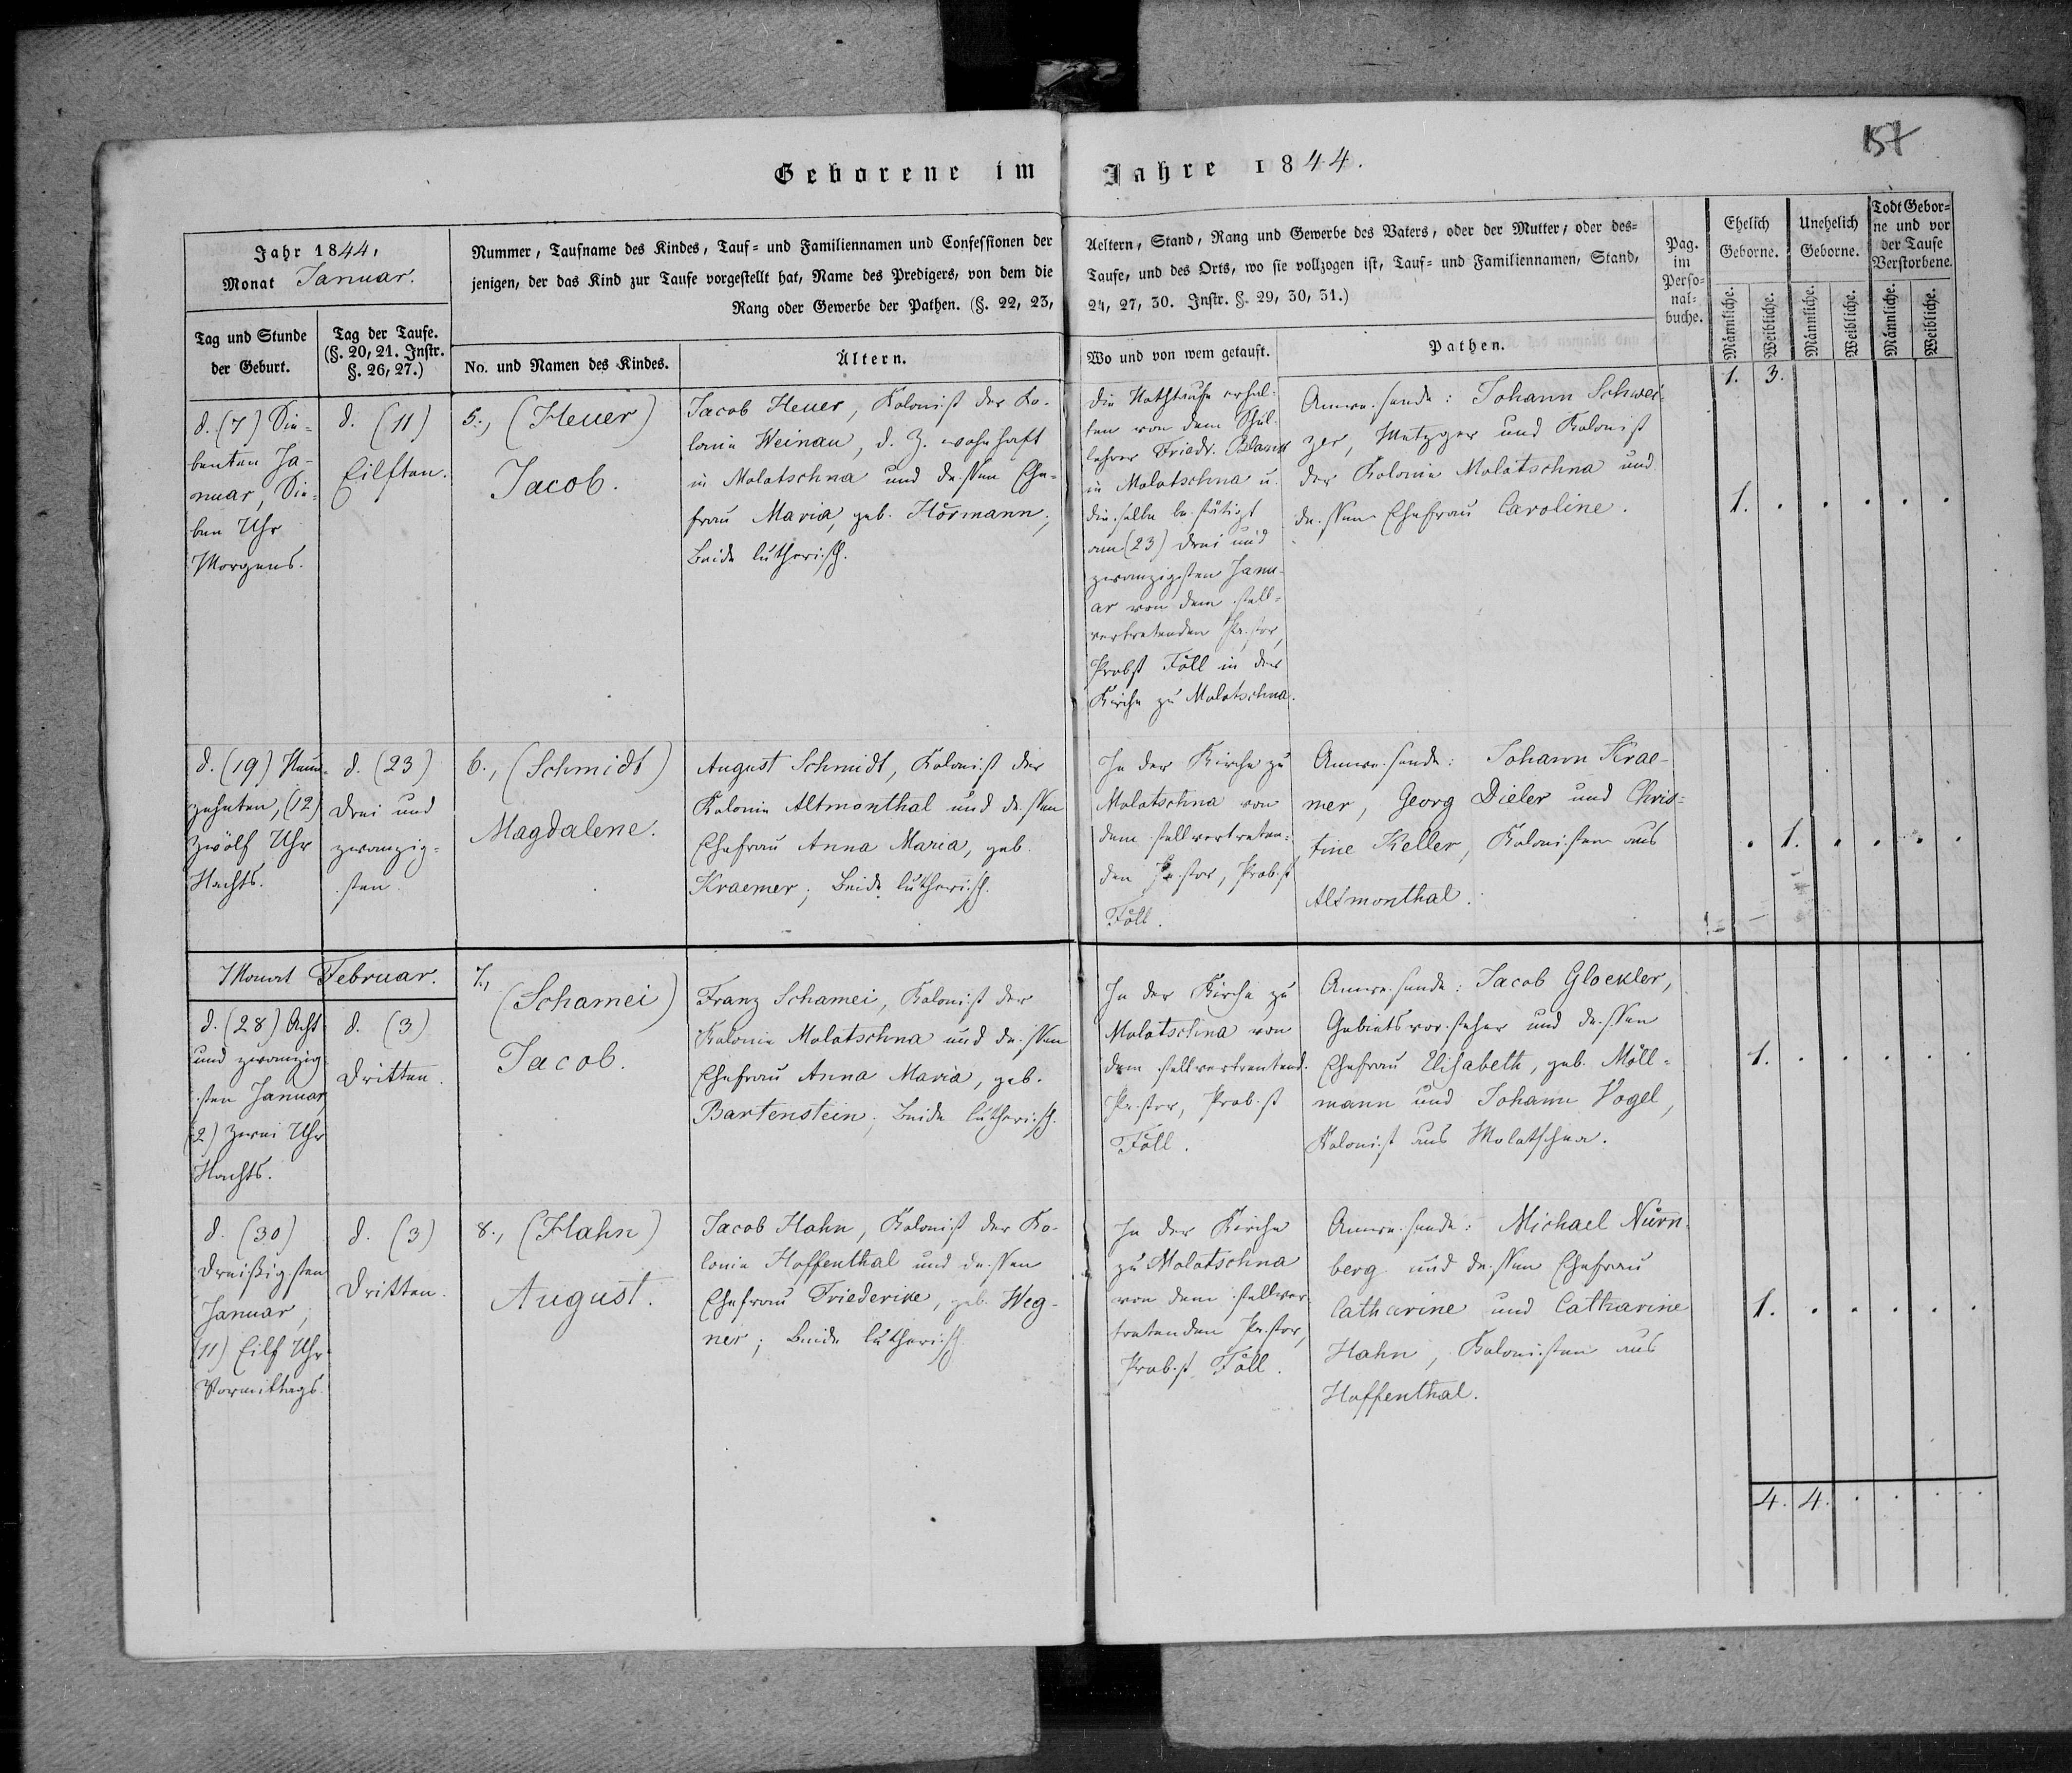 157
Geborene im Jahre 1844.
Jahr 1844,
Monat Januar.
Tag und Stunde
der Geburt.
Tag der Taufe.
(§. 20, 21. Instr.
§. 26, 27.)
Nummer, Taufname des Kindes, Tauf- und Familiennamen und Confessionen der
jenigen, der das Kind zur Taufe vorgestellt hat, Name des Predigers, von dem die
Rang oder Gewerbe der Pathen. (§. 22, 23,
No. und Namen des Kindes.
Ältern.
Aeltern, Stand, Rang und Gewerbe des Vaters, oder der Mutter, oder des-
Taufe, und des Orts, wo sie vollzogen ist, Tauf- und Familiennamen, Stand,
24, 27, 30. Instr. §. 29, 30, 31.)
Wo und von wem getauft.
Pathen.
Pag.
im
Perso-
nal-
buche.
Ehelich
Geborne.
Unehelich
Geborne.
Todt Gebor-
ne und vor
der Taufe
Verstorbene.
Männliche.
Weibliche.
Männliche.
Weibliche.
Männliche.
Weibliche.
1. 3.
d. (7) Sie-
benten Ja-
nuar, Sie-
ben Uhr
Morgens.
d. (11)
Eilften.
5., (Heuer)
Jacob.
Jacob Heuer, Kolonist der Ko-
lonie Weinau, d. Z. wohnhaft
in Molotschna und dessen Ehe-
frau Maria, geb. Hörmann;
Beide lutherisch.
Die Nothtaufe erhal-
ten von dem Schul-
lehrer Friedr.
in Molotschna u.
dieselbe bestätigt
am (23) drei und
zwanzigsten Janu-
ar von dem stell-
vertretenden Pastor,
Probst Föll in der
Kirche zu Molotschna.
Anwesende: Johann Schwei-
zer, Metzger und Kolonist
der Kolonie Molotschna und
dessen Ehefrau Caroline.
1. . . . . .
d. (19) Neun-
zehnten, (12)
Zwölf Uhr
Nachts.
d. (23)
Drei und
zwanzig-
sten.
6., (Schmidt)
Magdalene.
August Schmidt, Kolonist der
Kolonie Altmonthal und dessen
Ehefrau Anna Maria, geb.
Kraemer; Beide lutherisch.
In der Kirche zu
Molotschna von
dem stellvertreten-
den Pastor, Probst
Föll.
Anwesende: Johann Krae-
mer, Georg Dieler und Chris-
tine Keller, Kolonisten aus
Altmonthal.
. 1. . . . .
Monat Februar.
d. (28) Acht
und zwanzig-
sten Januar,
(2) Zwei Uhr
Nachts.
d. (3)
Dritten.
7.,
(Schamei)
Jacob.
Franz Schamei, Kolonist der
Kolonie Molotschna und dessen
Ehefrau Anna Maria, geb.
Bartenstein; Beide lutherisch.
In der Kirche zu
Molotschna von
dem stellvertretend.
Pastor, Probst
Föll.
Anwesende: Jacob Gloekler,
Gebietsvorsteher und dessen
Ehefrau Elisabeth, geb. Möll-
mann und Johann Vogel,
Kolonist aus Molotschna.
1. . . . . .
d. (30)
Dreißigsten
Januar,
(11) Eilf Uhr
Vormittags.
d. (3)
Dritten.
8., (Hahn)
August.
Jacob Hahn, Kolonist der Ko-
lonie Hoffenthal und dessen
Ehefrau Friederike, geb. Weg-
ner; Beide lutherisch.
In der Kirche
zu Molotschna
von dem stellver-
tretenden Pastor,
Probst Föll.
Anwesende: Michael Nürn-
berg und dessen Ehefrau
Catharine und Catharine
Hahn, Kolonisten aus
Hoffenthal.
1. . . . . .
4. 4. . . . .